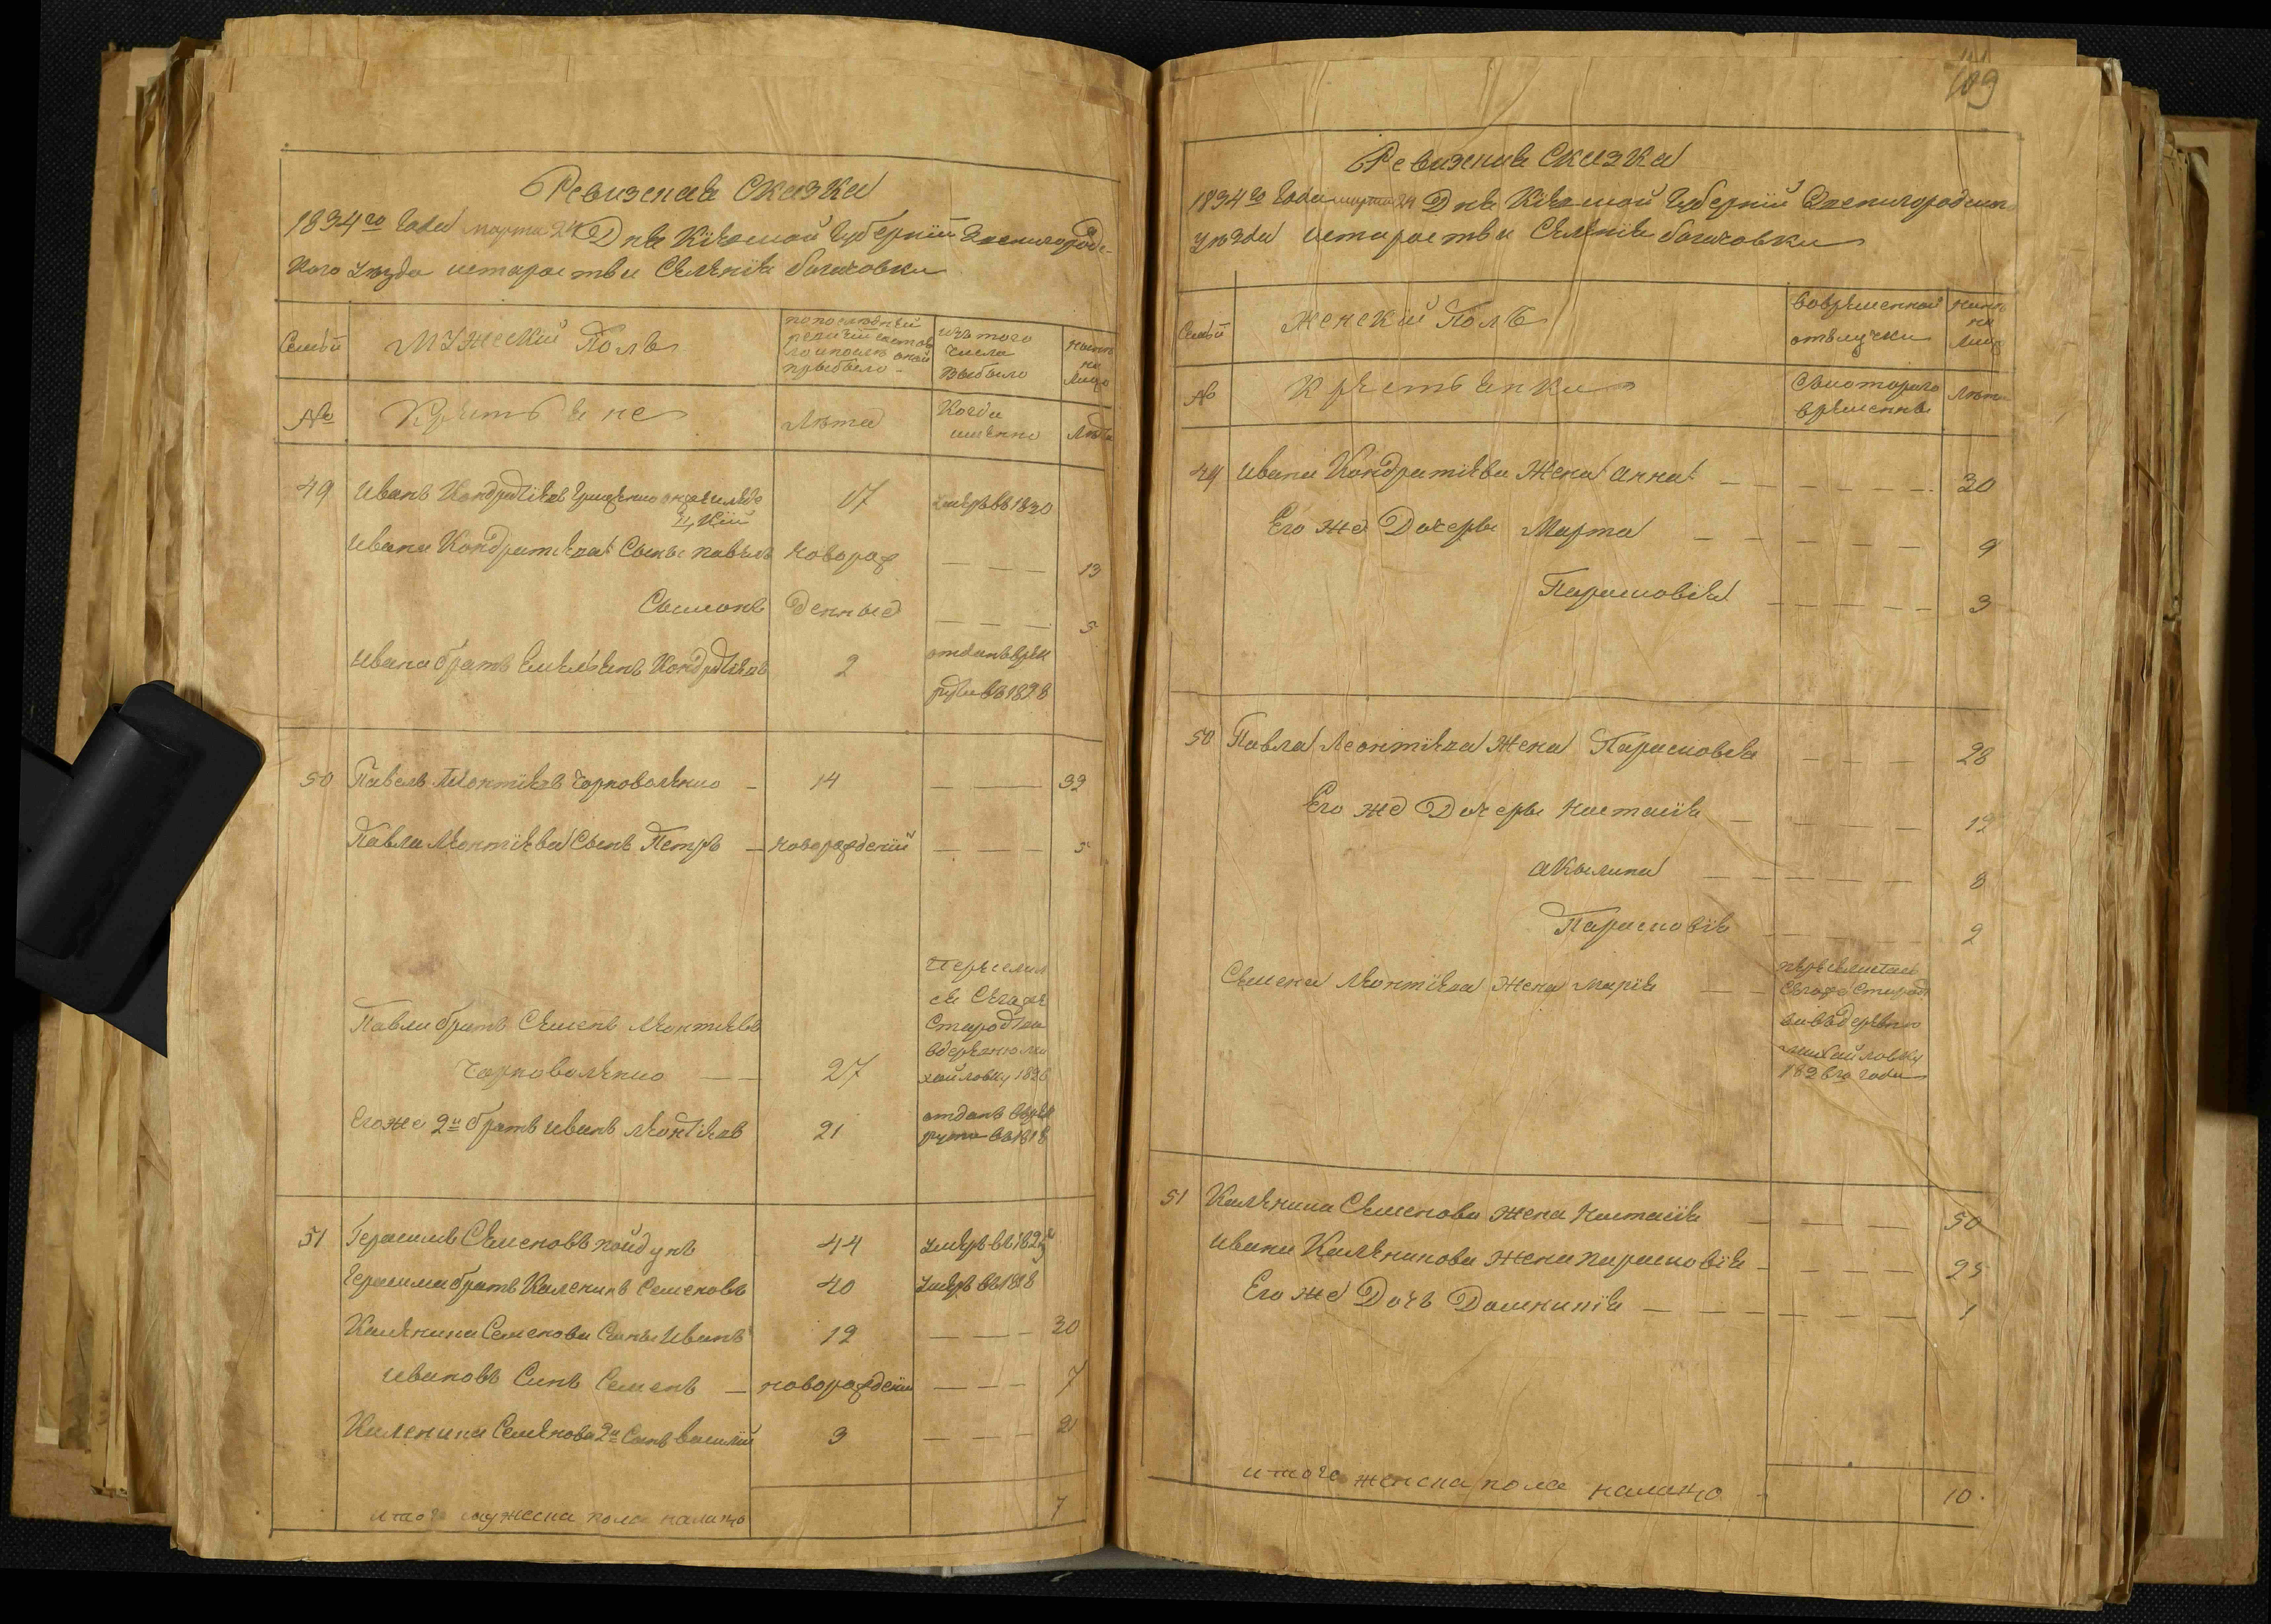 Ревизская Сказка
1834го Года марта 24 Дня Кіевской Губерніи Звенигородс-
кого уезда староства Селенія богачовки
Семьи
Мужеский Полъ
по последней
ревизіи состоя
ло и после оной
прибыло
изъ того
числа
Выбыло
ныне
на
лицо
№
Крестьяне
Лета
Когда
именно
Лета
49 Иванъ Кондратіевъ Грищенко онже
Умеръ въ 1830
17
Ивана Кондратіева Сыны павелъ новорож — — — 13
Сымонъ денные — — — 5
Ивана братъ Емельянъ Кондратіевъ 2
отданъ врек
руты въ 1828
50 Павелъ Леонтіевъ Чорноволенко — 14 — — 32
Павла Леонтіева Сынъ Петръ — новорожденій — — — 5
Переселил
ся Сегоже
Староства
в деревню ми
хайловку 1826
Павла братъ Семенъ Леонтіевъ
Чорноволенко — — 27
Егоже 2й братъ иванъ Леонтіевъ 21
отданъ врек
руты въ 1818
51 Герасимъ Семеновъ пойдунъ 44 Умеръ въ
Герасима братъ Каленикъ Семеновъ 40 Умеръ въ 1818
Каленика Семенова Сыны Иванъ 12 — — — 30
Ивановъ Синъ Семенъ — новорожденій — — — 7
Каленика Семенова 2й Сынъ василий 3 — — — 2
итого мужеска пола налицо 7
109
Ревизская Сказка
1834го Года марта 24 Дня Кіевской Губерніи Звенигородского
уезда староства Селенія богачовки
Семьи
Женский Полъ
Вовременной
отлучки
ныне
на
лицо
№
Крестьянки
Скоторого
времени
Лета
49 Ивана Кондратіева Жена анна — — — 30
Его же Дочеры Марта — — — 9
Парасковія — — — 3
50 Павла Леонтіева Жена Парасковія — — — 28
Его же Дочеры настасія — — — 12
акылина — — — 8
Парасковія — — — 2
Семена Леонтіева Жена марія — —
переселилась
Сегоже Старост
ва въ деревню
михайловку
1826го года
51 Каленика Семенова жена настасія — — — 50
Ивана Каленикова жена парасковія — — — 25
Его же Дочъ Домникія — — — 1
итого женска пола налицо 10.